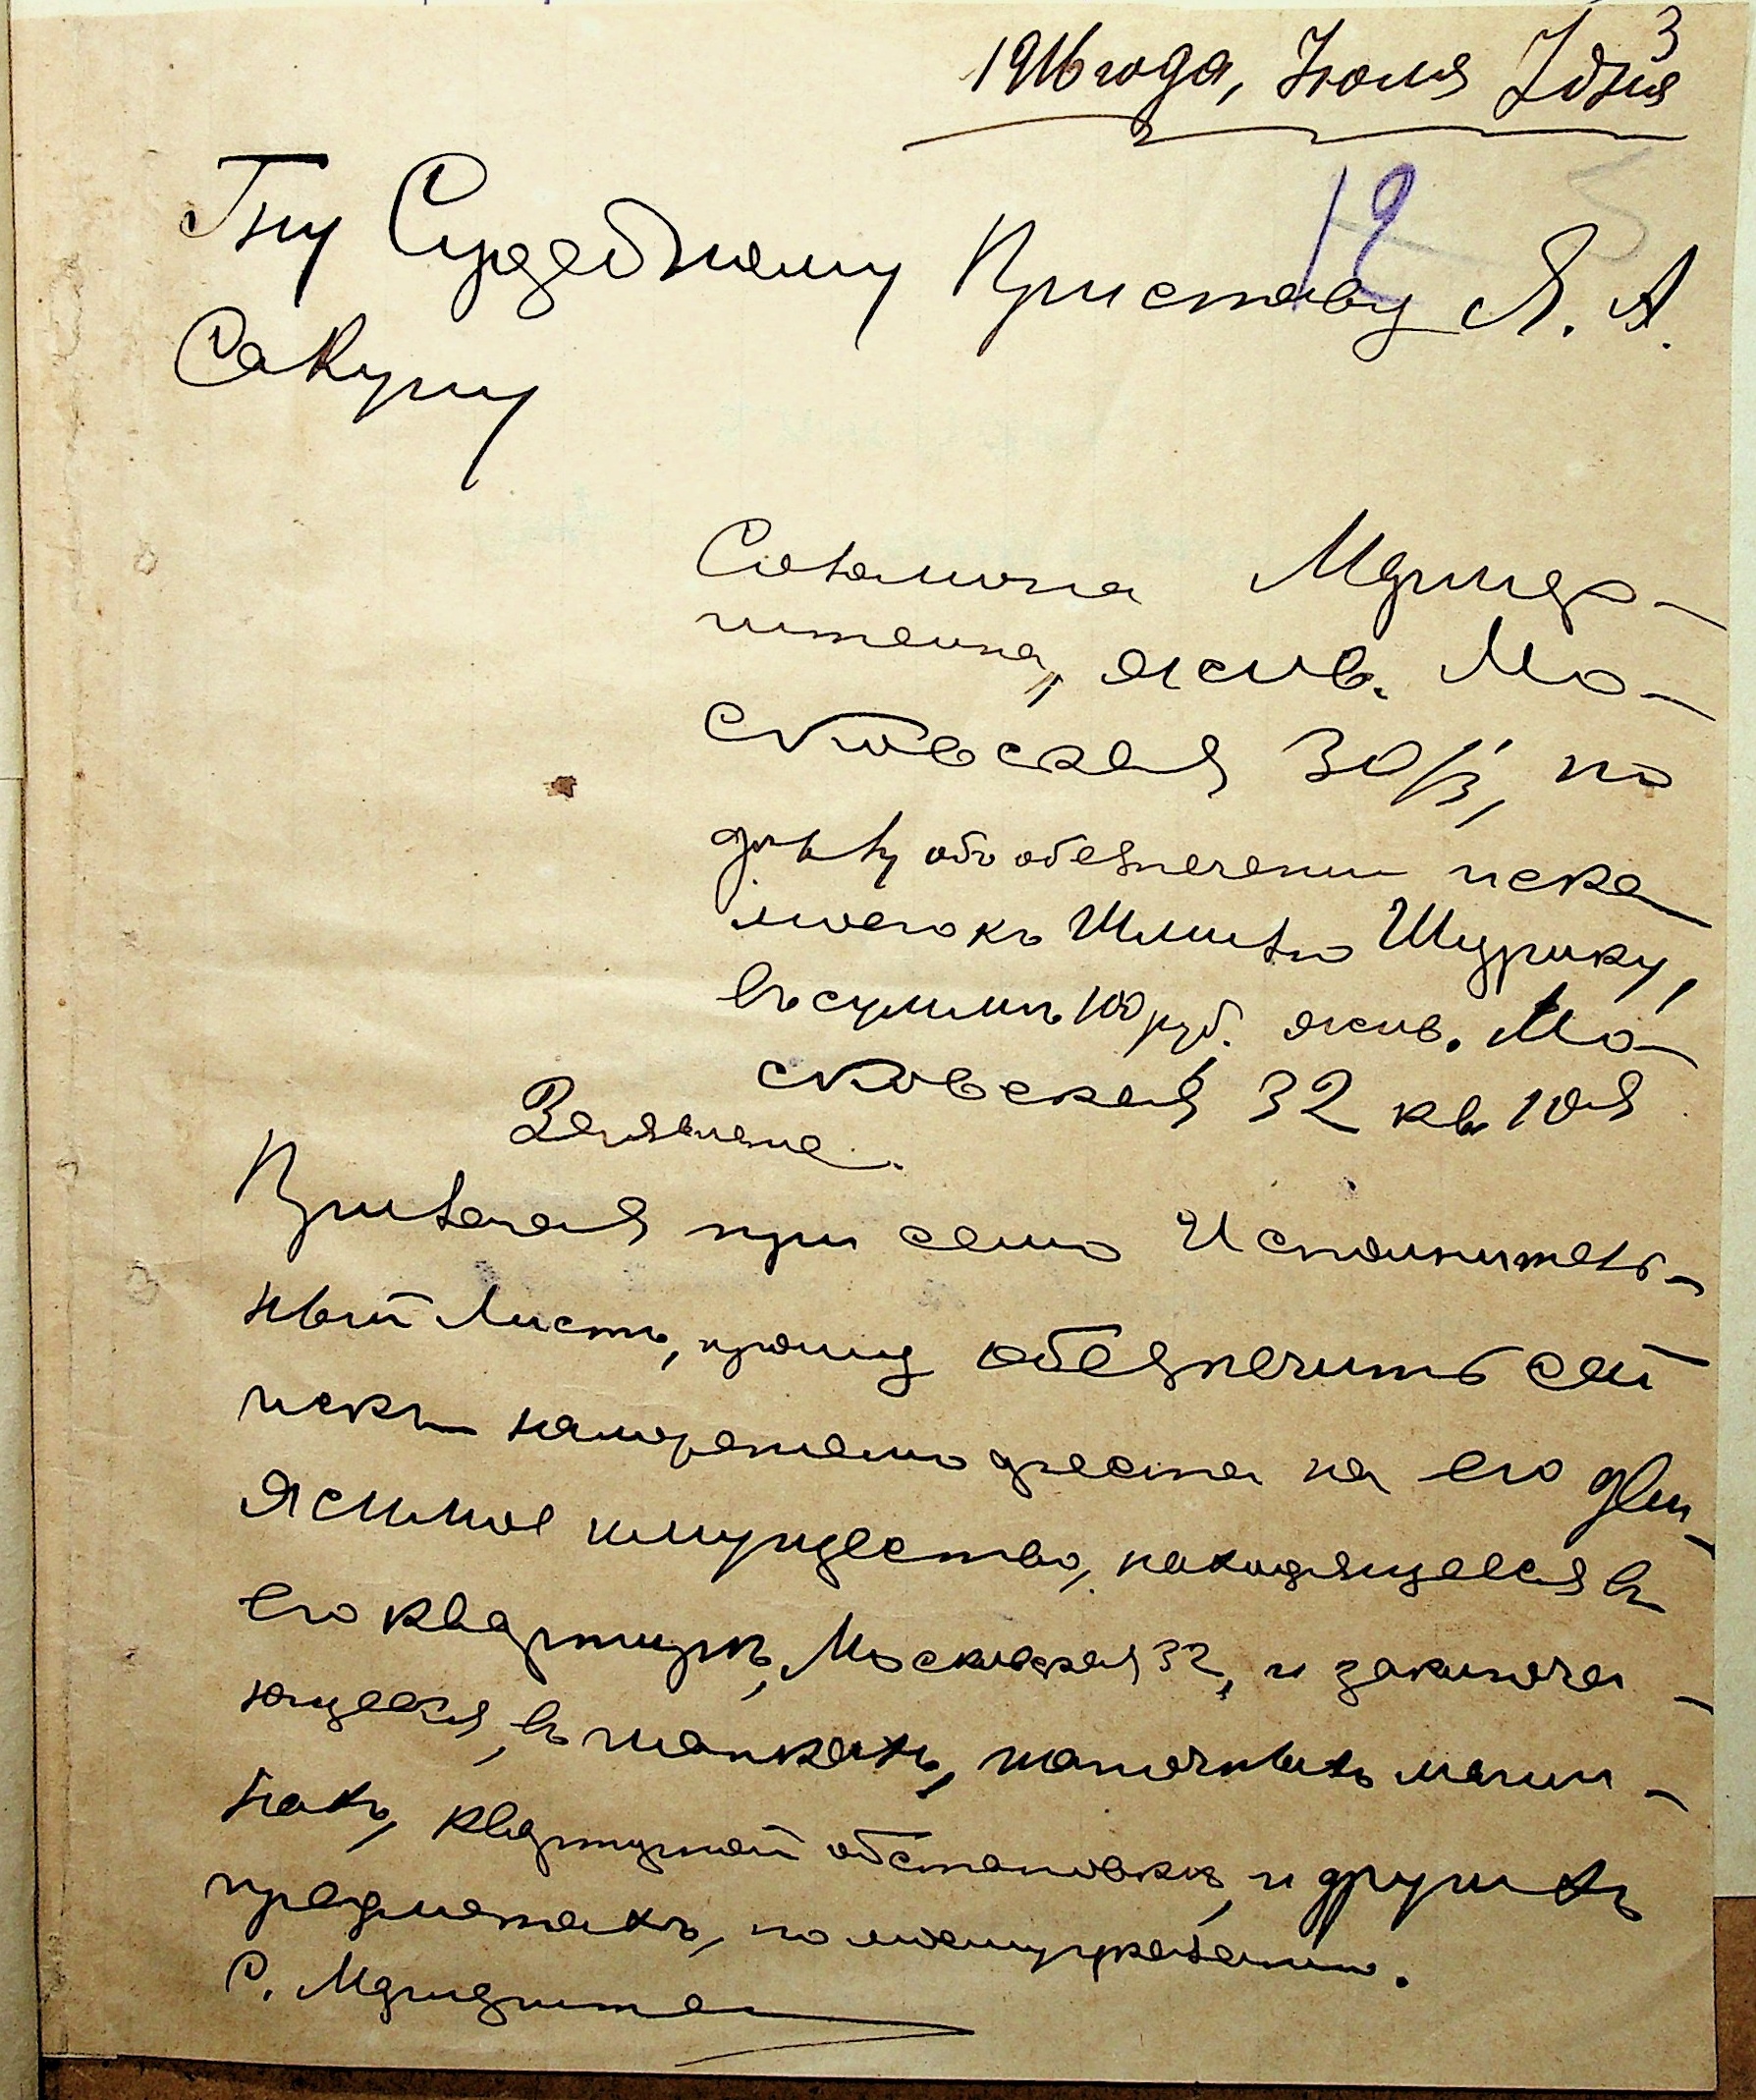 3
1916 года, Июля 7 дня
12
Гну Судебному Приставу Я. А.
Сакуну
Соломона
штейна, жив. Мо-
сковская 30/3, по
дѣлу объ обезпеченіи иска
моего къ Шлиомѣ Шурику,
въ суммѣ 100 руб. жив. Мо-
сковская 32 кв 10я
Заявленіе.
Прилагая при семъ Исполнитель-
ный Листъ, прошу обезпечить сей
искъ наложеніемъ ареста на его дви-
жимое имущество, находящееся въ
его квартирѣ, Московская 32, и заключа-
ющееся, въ шапкахъ, шапочныхъ маши-
нахъ, квартирной обстановкѣ, и другихъ
предметахъ, по моему указанію.
С.